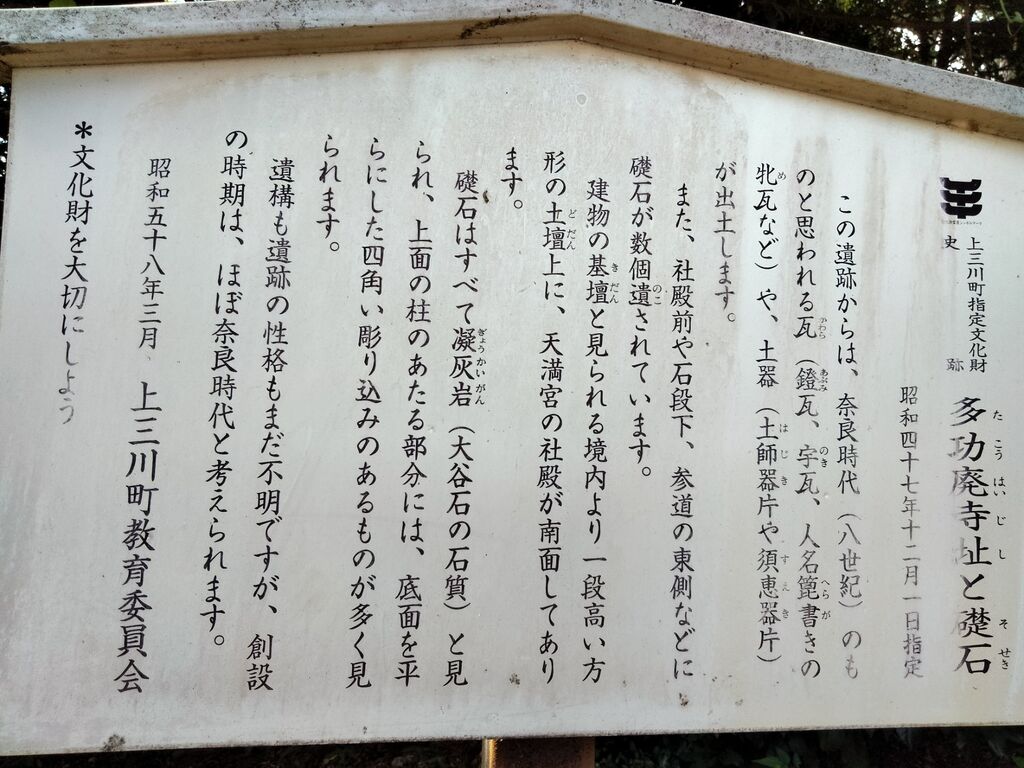 上三川町指定文化財
史跡
多功廃寺址と礎石
昭和四十七年十二月一日指定
この遺跡からは、奈良時代（八世紀）のも
のと思われる瓦（鐙瓦、宇瓦、人名箆書きの
牝瓦など）や、土器（土師器片や須恵器片）
が出土します。
また、社殿前や石段下、参道の東側などに
礎石が数個遺されています。
建物の基壇と見られる境内より一段高い方
形の土壇上に、天満宮の社殿が南面してあり
ます。
礎石はすべて凝灰岩（大谷石の石質）と見
られ、上面の柱のあたる部分には、底面を平
らにした四角い彫り込みのあるものが多く見
られます。
遺構も遺跡の性格もまだ不明ですが、創設
の時期は、ほぼ奈良時代と考えられます。
昭和五十八年三月　上三川町教育委員会
＊文化財を大切にしよう